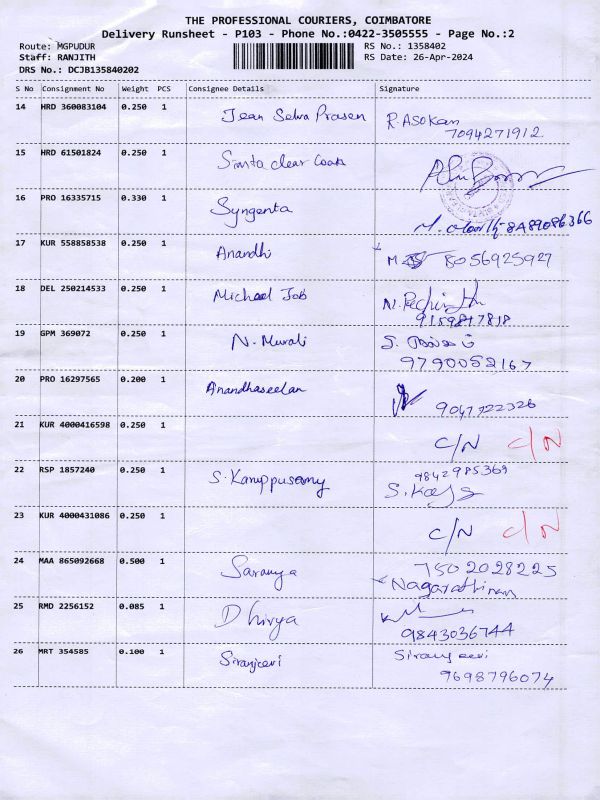 THE PROFESSIONAL COURIERS, COIMBATORE
Delivery Runsheet - P103 - Phone No.:0422-3505555 - Page No.:2
Route: MGPUDUR RS No.: 1358402
Staff: RANJITH RS Date: 26-Apr-2024
DRS No.: DCJB135840202
S No Consignment No Weight PCS Consignee Details Signature
14 HRD 360083104 0.250 1 Jean Selva Prasen R. ASOKAN
7094271912
15 HRD 61501824 0.250 1
16 PRO 16335715 0.330 1 Syngenta
17 KUR 558858538 0.250 1 Anandhi 8056925927
18 DEL 250214533 0.250 1 Michael Job
9159817818
19 GPM 369072 0.250 1 N. Murali
9790052167
20 PRO 16297565 0.200 1 Anandhaseelan 9047722326
21 KUR 4000416598 0.250 1 C/N C/N
22 RSP 1857240 0.250 1 S. Karuppusamy 9842985369
23 KUR 4000431086 0.250 1 C/N C/N
24 MAA 865092668 0.500 1 Saranya 7502028225
Nagarathinam
25 RMD 2256152 0.085 1 Dhivya
9843036744
26 MRT 354585 0.100 1 Siranjeevi Siranjeevi
9698796074